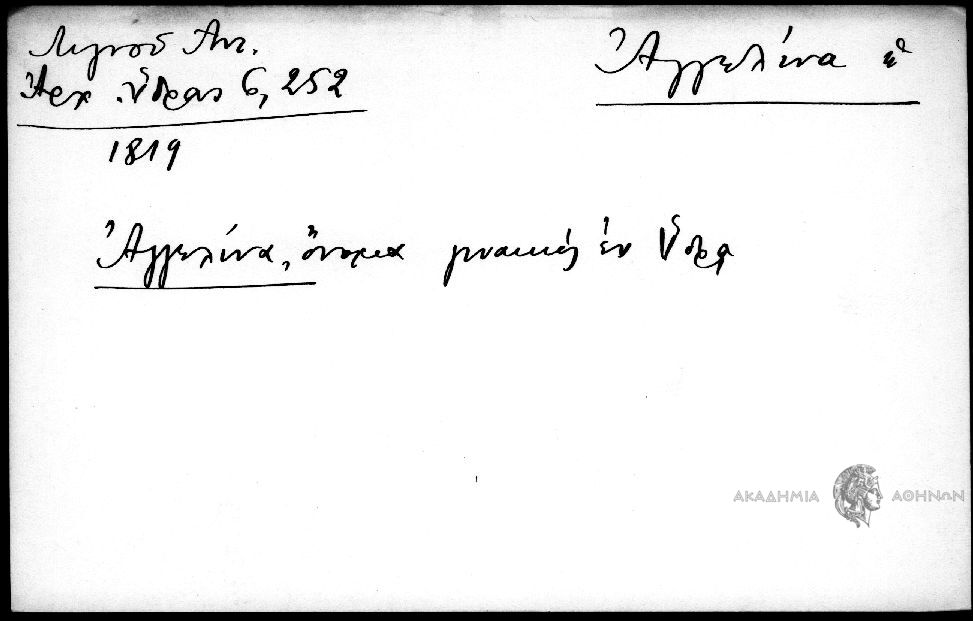 Λιγνοῦ Ἀντ.
Ἀρχ. Ὕδρας 6, 252
1819
Ἀγγελίνα ἡ
Ἀγγελίνα, ὄνομα γυναικός ἐν Ὕδρᾳ
ΑΚΑΔΗΜΙΑ ΑΘΗΝΩΝ